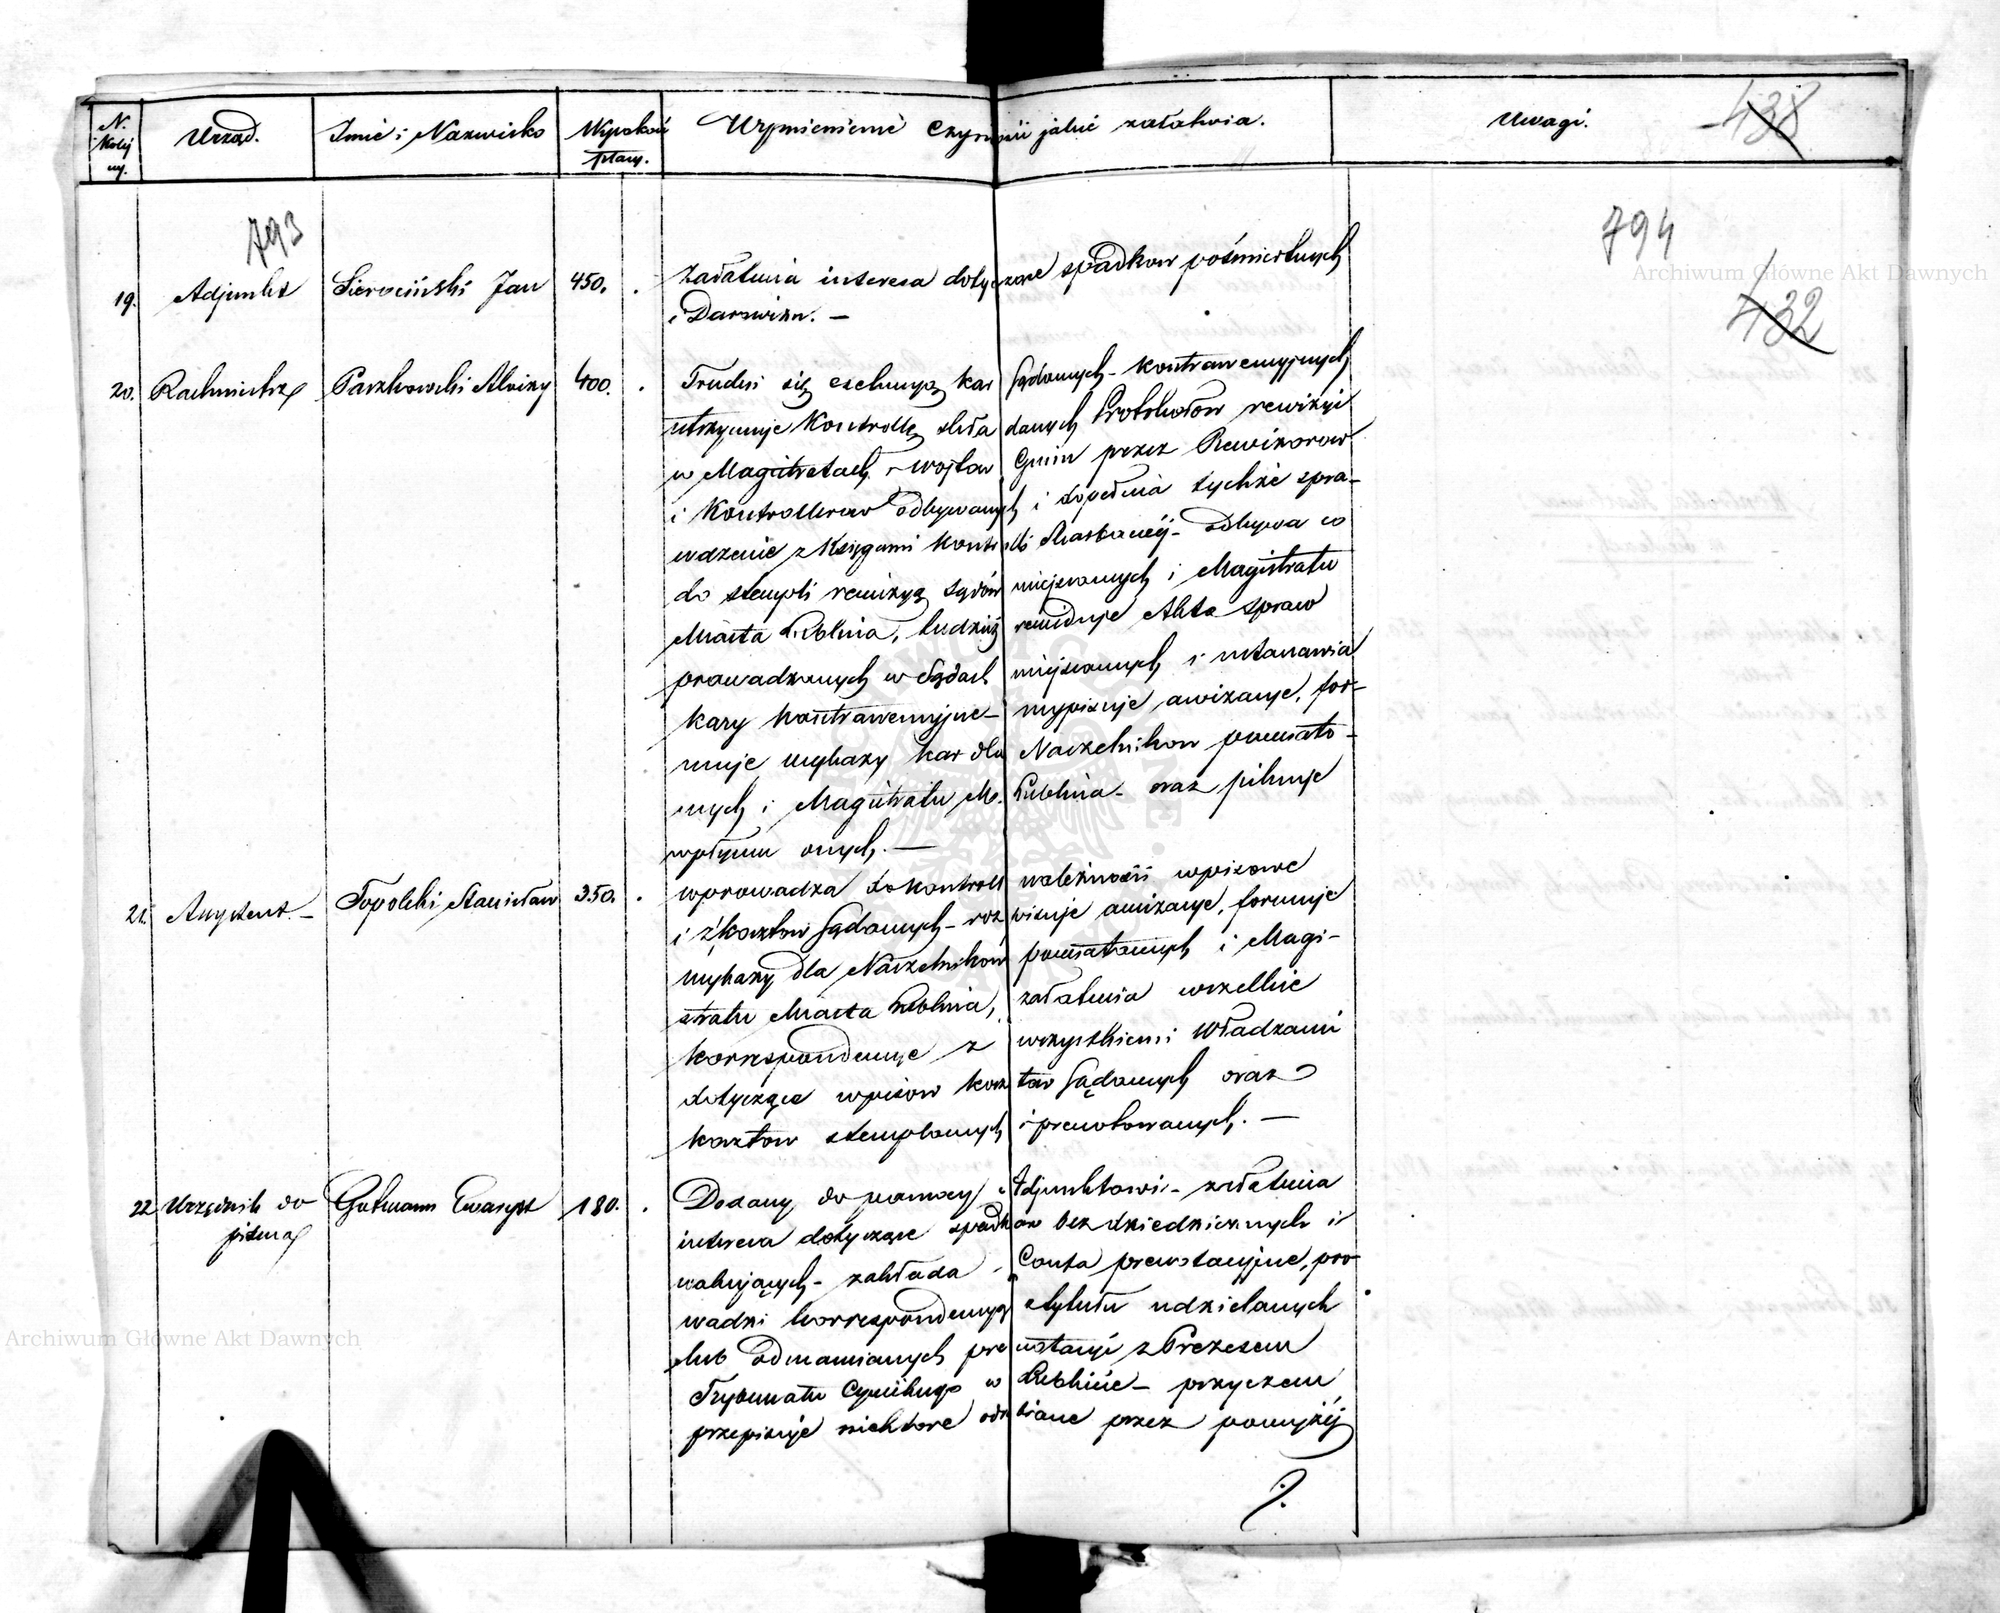 N. Kolej ny.
Urząd.
Imie i Nazwisko
Wysokość płacy.
Wymienienie Czynności jakie załatwia.
Uwagi.
438
793
794
432
19. Adjunkt Sierociński Jan 450. Załatwia interesa dotyczące spadkow pośmiertnych
i Darowizn. —
20. Rachmistrz Paszkowski Aloizy 400. Trudni się exekucyą kar Sądowych - kontrawencyjnych
utrzymuje Kontrollę składanych Protokołow rewizyi
w Magistratach i Wojtow Gmin przez Rewizorow
i Kontrollerow odbywanych i dopełnia tychże spra-
wdzenie z Księgami Kontrolli Skarbowéj - odbywa co
do stempli rewizyą Sądów miejscowych i Magistratu
Miasta Lublina, tudzież rewiduje Akta spraw
prowadzonych w Sądach miejscowych i ustanawia
kary kontrawencyjne - wypisuje awizacye, for-
muje wykazy kar dla Naczelnikow powiato-
wych i Magistratu M. Lublina - oraz pilnuje
wpływu onych. —
21. Assystent. - Topolski Stanisław 350. wprowadza do kontroll należności wpisowe
i z kosztow Sądowych - rozpisuje awizacye, formuje
wykazy dla Naczelników powiatowych i Magi-
stratu Miasta Lublina, załatwia wszelkie
korrespondencye z wszystkiemi Władzami
dotyczące wpisow kosztow Sądowych oraz
kosztow stemplowych i prenotowanych. —
22 Urzędnik do pisma Gutmann Ewaryst 180. Dodany do pomocy Adjunktowi - załatwia
interesa dotyczące spadkow bezdziedzicznych i
wakujących - zakłada Conta prenotacyjne, pro-
wadzi korrespondencyą z tytułu udzielanych
lub odmawianych prenotacyi z Prezesem
Trybunału Cywilnego w Lublinie - przyczem
przepisuje niektore odrobiane przez powyżéj
Archiwum Główne Akt Dawnych
Archiwum Główne Akt Dawnych